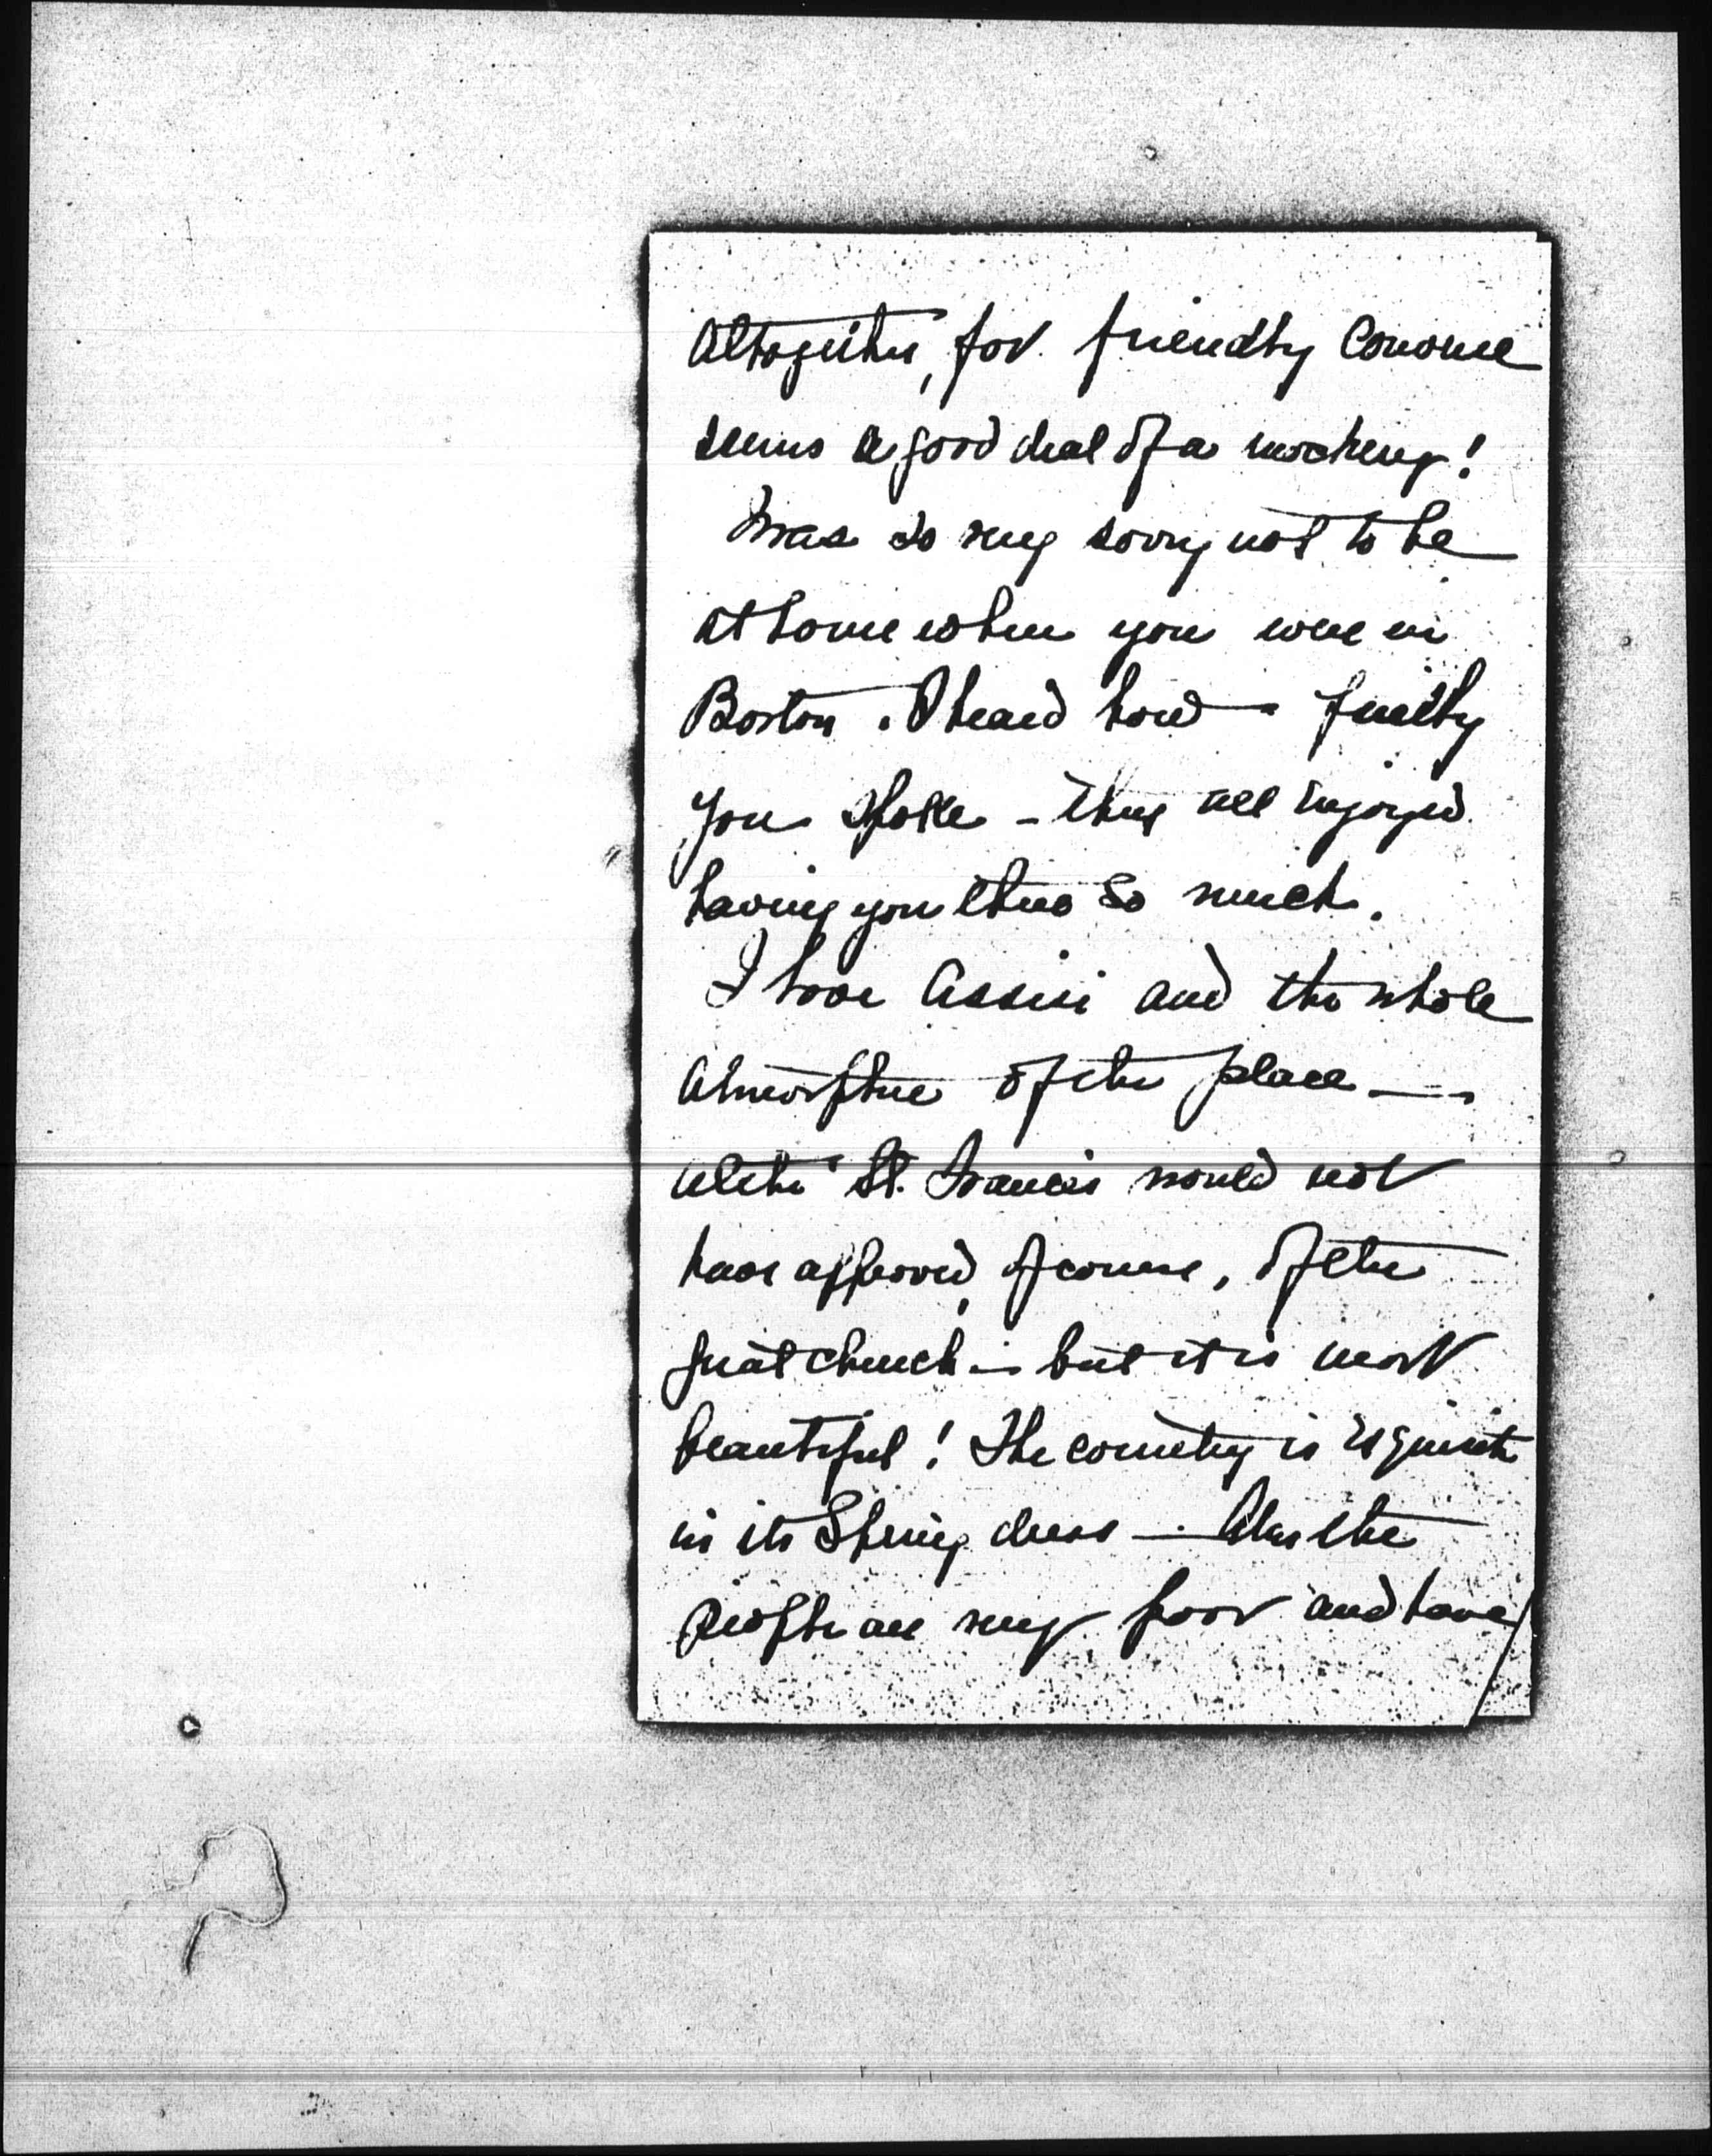 Altogether, for friendly converse
seems a good deal of a mockery!
I was so very sorry not to be
at home when you were in
Boston. I heard how finely
you spoke - they all enjoyed
having you there so much.
I love Assisi and the whole
atmosphere of the place —
altho' St. Francis would not
have approved, of course, of the
great church - but it is most
beautiful! The country is exquisite
in its Spring dress — Alas the
people are very poor and have